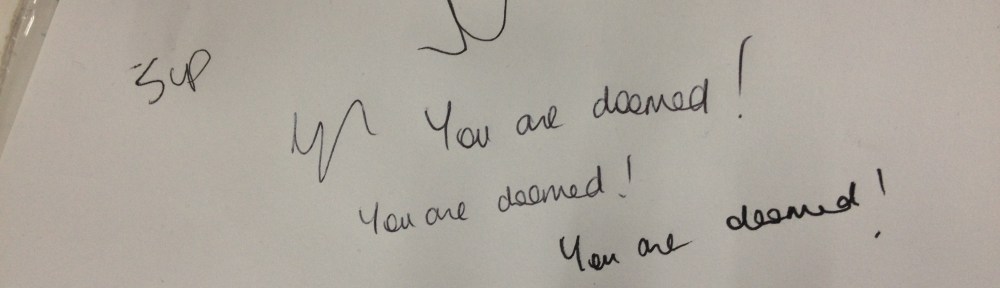 Sup
You are doomed!
You are doomed!
You are doomed!